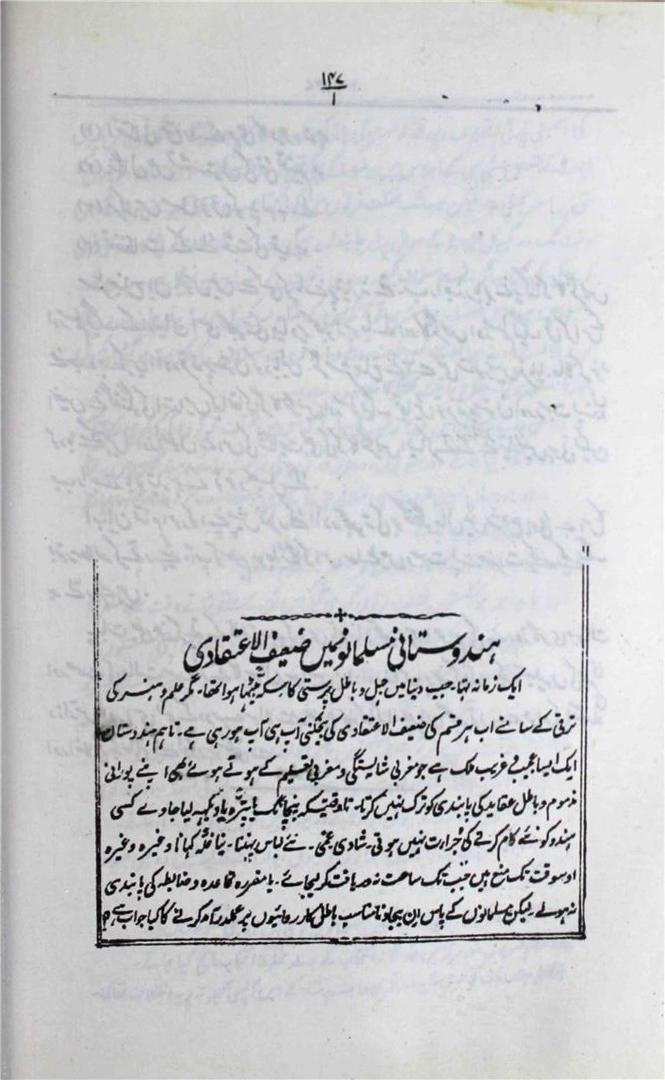 ۱۴۷
۱
ہندوستانی مسلمانونمیں ضعیف الاعتقادی
ایک زمانہ تھا۔ جب دنیا میں جہل و باطل پرستی کا سکہ بیٹھا ہوا تھا۔ مگر علم و ہنر کی
ترقی کے سامنے اب ہر قسم کی ضعیف الاعتقادی کی بیخکنی آپ ہی آپ ہو رہی ہے۔ تاہم ہندوستان
ایک ایسا عجیب و غریب ملک ہے جو مغربی شایستگی و مغربی تعلیم کے ہوتے ہوئے بھی اپنے پورانی
مذموم و باطل عقاید کی پابندی کو ترک نہیں کرتا۔ تا وقتیکہ پنچانگ یا پترہ یا د کہہ لیا جاوے کسی
ہندو کو نئے کام کرنے کی جرات نہیں ہوتی۔ شادی غمی۔ نئے لباس پہننا۔ نیا غلہ کہانا وغیرہ وغیرہ
اوسوقت تک منع ہیں جب تک ساعت نہ دریافت کر لیجائے۔ یا مقررہ قاعدہ و ضابطہ کی پابندی
نہ ہولے لیکن مسلمانوں کے پاس این بیجا و نامناسب باطل کارروائیوں پر عملدرآمد کرنے کا کیا جواب ہے؟